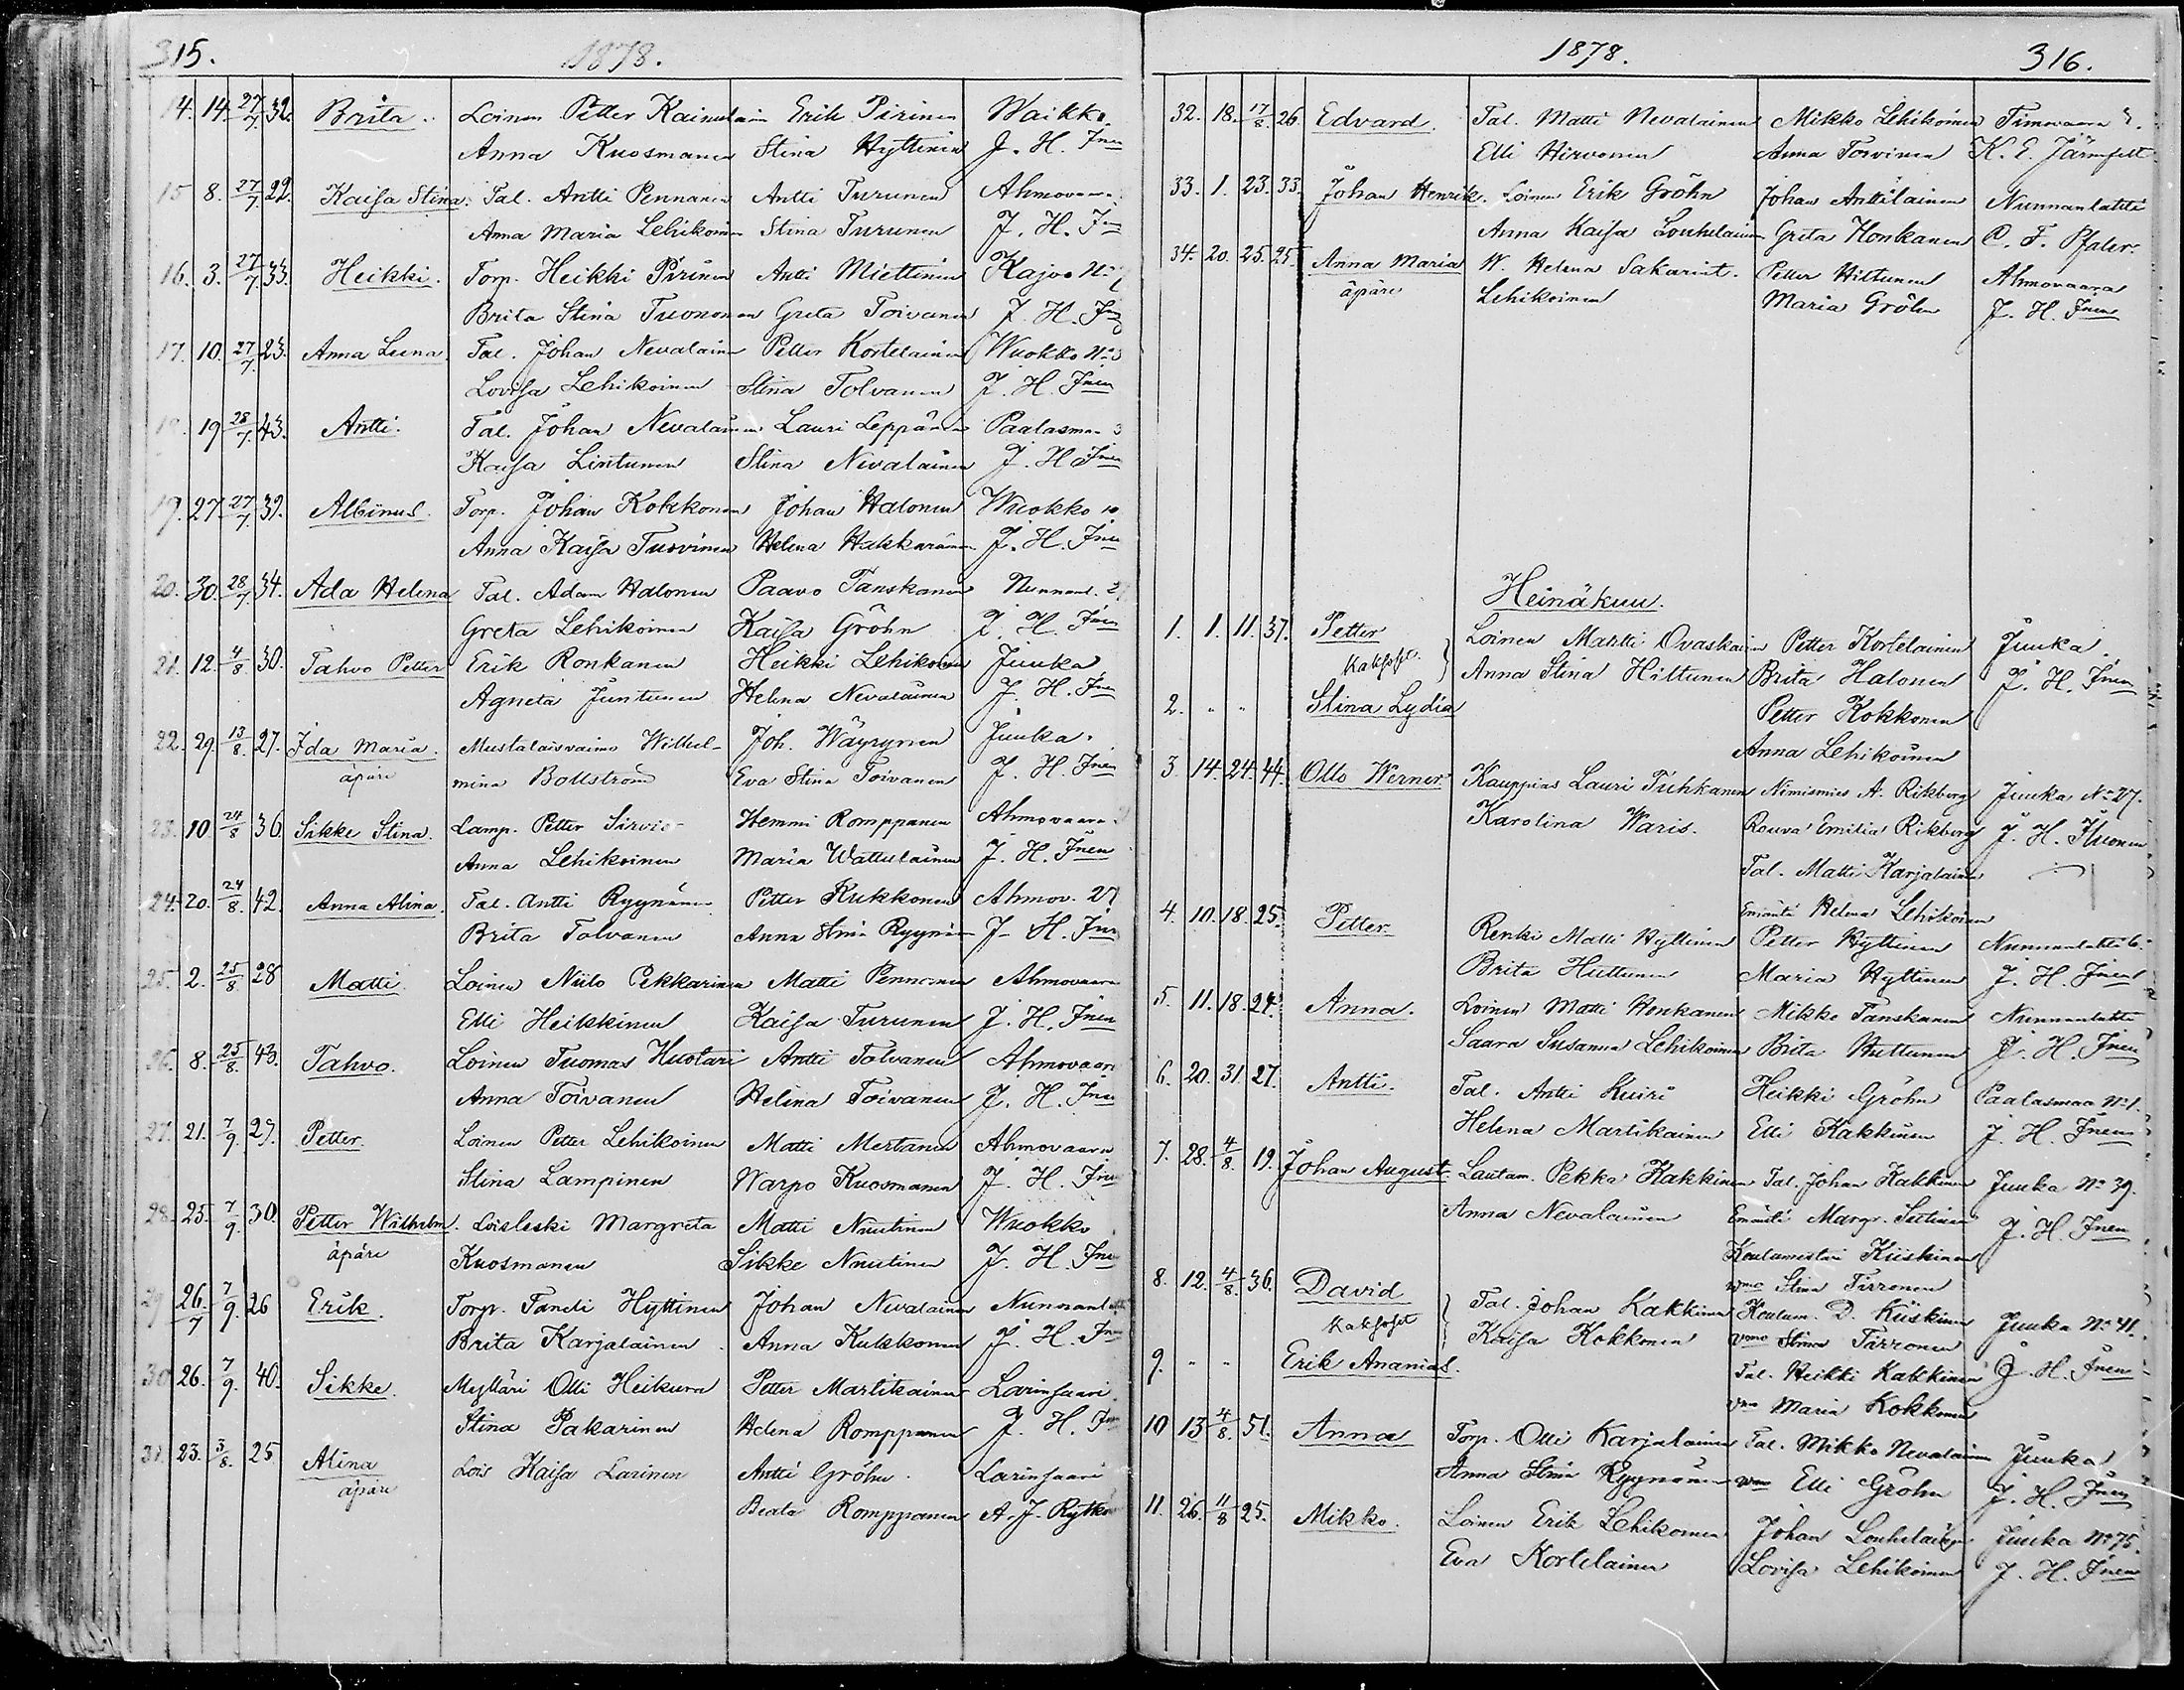 315.
1878.
14. 14. 27/7. 32. Brita. Loinen Petter Kainulain Erik Pirinen Waikko.
Anna Kuosmanen Stina Hyttinen J. H. Inen
15 8. 27/7. 22. Kaisa Stina. Tal. Antti Pennanen Antti Turunen Ahmovaara
Anna Maria Lehikoinen Stina Turunen J. H. Inen
16. 3. 27/7. 33. Heikki. Torp. Heikki Pirinen Antti Miettinen Kajoo No
Brita Stina Tuononen Greta Toivanen J. H. In
17. 10. 27/7. 23. Anna Leena. Tal. Johan Nevalainen Petter Kortelainen Wuokko No 3
Lovisa Lehikoinen Stina Tolvanen J. H. Inen
18. 19 28/7. 43. Antti. Tal. Johan Nevalainen Lauri Leppänen Paalasma. 3
Kaisa Lintunen Stina Nevalainen J. H. Inen
19. 27. 27/7. 39. Albinus. Torp. Johan Kokkonen Johan Halonen Wuokko 10
Anna Kaisa Tuovinen Helena Hakkarainen J. H. Inen
20. 30. 28/7. 34. Ada Helena Tal. Adam Halonen Paavo Tanskanen Nunnanl. 27
Greta Lehikoinen Kaisa Gröhn J. H. Inen
21. 12. 4/8. 30. Tahvo Petter Erik Ronkanen Heikki Lehikoinen Juuka
Agneta Juntunen Helena Nevalainen J. H. Inen
22. 29 13/8. 27. Ida Maria. Mustalaisvaimo Wilhel- Joh. Wäyrynen Juuka.
äpäre mina Bollström Eva Stina Toivanen J. H. Inen
23. 10 24/8 36. Sikke Stina. Lamp. Petter Sirvio Hemmi Romppanen Ahmovaara
Anna Lehikoinen Maria Wattulainen J. H. Inen
24. 20. 24/8. 42. Anna Alina. Tal. Antti Ryynänen Petter Kukkonen Ahmov. 27
Brita Tolvanen Anna Stina Ryynän J. H. Inen
25. 2. 25/8 28 Matti. Loinen Niilo Pekkarinen Matti Pennanen Ahmovaara
Elli Heikkinen Kaisa Turunen J. H. Inen
26. 8. 25/8. 43. Tahvo. Loinen Tuomas Huotari Antti Tolvanen Ahmovaara
Anna Toivanen Helena Toivanen J. H. Inen
27. 21. 7/9. 29. Petter. Loinen Petter Lehikoinen Matti Mertanen Ahmovaara
Stina Lampinen Warpo Kuosmanen J. H. Inen
28. 25. 7/9. 30. Petter Wilhelm. Loisleski Margreta Matti Nuutinen Wuokko
äpäre Kuosmanen Sikke Nuutinen J. H. Inen
29 26./7 7/9. 26 Erik. Torp. Taneli Hyttinen Johan Nevalainen Nunnanl
Brita Karjalainen. Anna Kukkonen J. H. Inen
30 26. 7/9. 40. Sikke. Mylläri Olli Heikura Petter Martikainen Larinsaari
Stina Pakarinen Helena Romppanen J. H. Inen
31. 23. 3/8. 25 Alina Lois Kaisa Larinen Antti Gröhn. Larinsaari
äpäre Beata Romppanen A. J. Rytkö
1878.
316.
32. 18. 17/8. 26. Edvard. Tal. Matti Nevalainen Mikko Lehikoinen Timovaara
Elli Hirvonen Anna Torvinen K. E. Järnefelt
33. 1. 23. 33. Johan Henrik. Loinen Erik Gröhn Johan Anttilainen Nunnanlahti
Anna Kaisa Louhelainen Greta Honkanen C. F. Pfaler.
34. 20. 25. 25. Anna Maria W. Helena Sakarint. Petter Hiltunen Ahmovaara
äpäre Lehikoinen Maria Gröhn J. H. Inen
Heinäkuu.
1. 1. 11. 37. Petter Loinen Martti Ovaskainen Petter Kortelainen Juuka.
Kaksoset. Anna Stina Hiltunen Brita Halonen J. H. Inen
2. " " Stina Lydia Petter Kokkonen
Anna Lehikoinen
3. 14. 24. 44. Otto Werner. Kauppias Lauri Tuhkanen Nimismies A. Rikberg Juuka No 27.
Karolina Waris. Rouva Emilia Rikberg J. H. Ihonen
Tal. Matti Karjalainen
Emäntä Helena Lehikoinen
4. 10. 18. 25. Petter Renki Matti Hyttinen Petter Hyttinen Nunnanlahti 6.
Brita Huttunen Maria Hyttinen J. H. Inen
5. 11. 18. 24. Anna. Loinen Matti Honkanen Mikko Tanskanen Nunnanlahti
Saara Susanna Lehikoinen Brita Huttunen J. H. Inen
6. 20. 31. 27. Antti. Tal. Antti Kuiri Heikki Gröhn Paalasmaa No 1.
Helena Martikainen Elli Kakkinen J. H. Inen
7. 28. 4/8. 19. Johan August. Lautam. Pekka Kakkinen Tal. Johan Kakkinen Juuka No 39.
Anna Nevalainen Emäntä Margr. J. H. Inen
Koulumestari Kiiskinen
vmo Stina Tirronen
8. 12. 4/8. 36. David Tal. Johan Kakkinen Koulum. D. Kiiskinen Juuka No 41.
Kaksoset Kaisa Kokkonen vmo Stina Tirronen
9. " " Erik Ananias. Tal. Heikki Kakkinen J. H. Inen
vmo Maria Kokkonen
10 13 4/8. 51. Anna Torp. Olli Karjalainen Tal. Mikko Nevalainen Juuka
Anna Stina Ryynänen vmo Elli Gröhn J. H. Inen
11. 26. 11/8 25. Mikko. Loinen Erik Lehikoinen Johan Louhelainen Juuka No 75.
Eva Kortelainen Lovisa Lehikoinen J. H. Inen